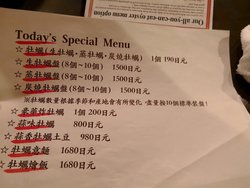 Our all-you-can-eat oyster menu option
Today's Special Menu
☆牡蠣(生牡蠣,蒸牡蠣,炭燒牡蠣) 1個 190日元
☆生牡蠣盤(8個~10個) 1500日元
☆蒸牡蠣盤(8個~10個) 1500日元
☆炭燒牡蠣盤(8個~10個) 1500日元
※牡蠣數量根據季節和產地會有所變化,盡量按10個標準裝盤!
炸牡蠣 1個 200日元
☆蒜味牡蠣 800日元
☆蒜香牡蠣土豆 980日元
☆牡蠣意麵 1680日元
☆牡蠣燴飯 1680日元